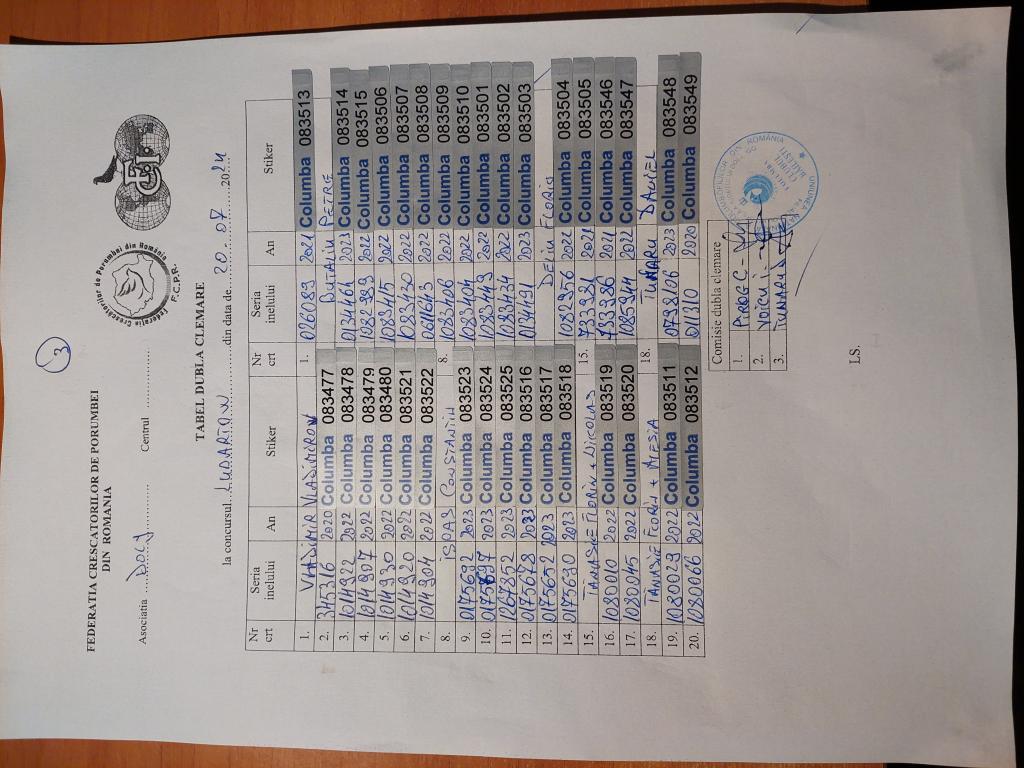 3
FEDERATIA CRESCATORILOR DE PORUMBEI
DIN ROMANIA
Federația Crescătorilor de Porumbei din România
F.C.P.R.
FCI
Asociatia ... DOCY ... Centrul ...
TABEL DUBLA CLEMARE
la concursul ... din data de 20.07.2024
Nr crt Seria inelului An Stiker Nr crt Seria inelului An Stiker
1. VLADIMIR VLADIMIROV 1. 026089 2021 Columba 083513
2. 345316 2020 Columba 083477 BUTALIU PETRE
3. 1014922 2022 Columba 083478 0134464 2023 Columba 083514
4. 1014907 2022 Columba 083479 1082989 2022 Columba 083515
5. 1014930 2022 Columba 083480 1083415 2022 Columba 083506
6. 1014920 2022 Columba 083521 1083430 2022 Columba 083507
7. 1014904 2022 Columba 083522 0611643 2022 Columba 083508
8. ISPAS CONSTANTIN 8. 1083426 2022 Columba 083509
9. 0175692 2023 Columba 083523 1083404 2022 Columba 083510
10. 0175697 2023 Columba 083524 1083443 2022 Columba 083501
11. 1267852 2023 Columba 083525 1083434 2022 Columba 083502
12. 0175678 2023 Columba 083516 0134491 2023 Columba 083503
13. 0175652 2023 Columba 083517 DELIU FLORIN
14. 0175690 2023 Columba 083518 1083956 2022 Columba 083504
15. TANASIE FLORIN + NICOLAS 15. 733321 2021 Columba 083505
16. 1080010 2022 Columba 083519 733326 2021 Columba 083546
17. 1080045 2022 Columba 083520 1085944 2022 Columba 083547
18. TANASIE FLORIN + ALESIA 18. TUNARU DANIEL
19. 1080029 2022 Columba 083511 0738106 2023 Columba 083548
20. 1080066 2022 Columba 083512 011310 2020 Columba 083549
Comisie dubla clemare
1. PIROG C-
2. VOICU I-
3. TUNARU D
LS.